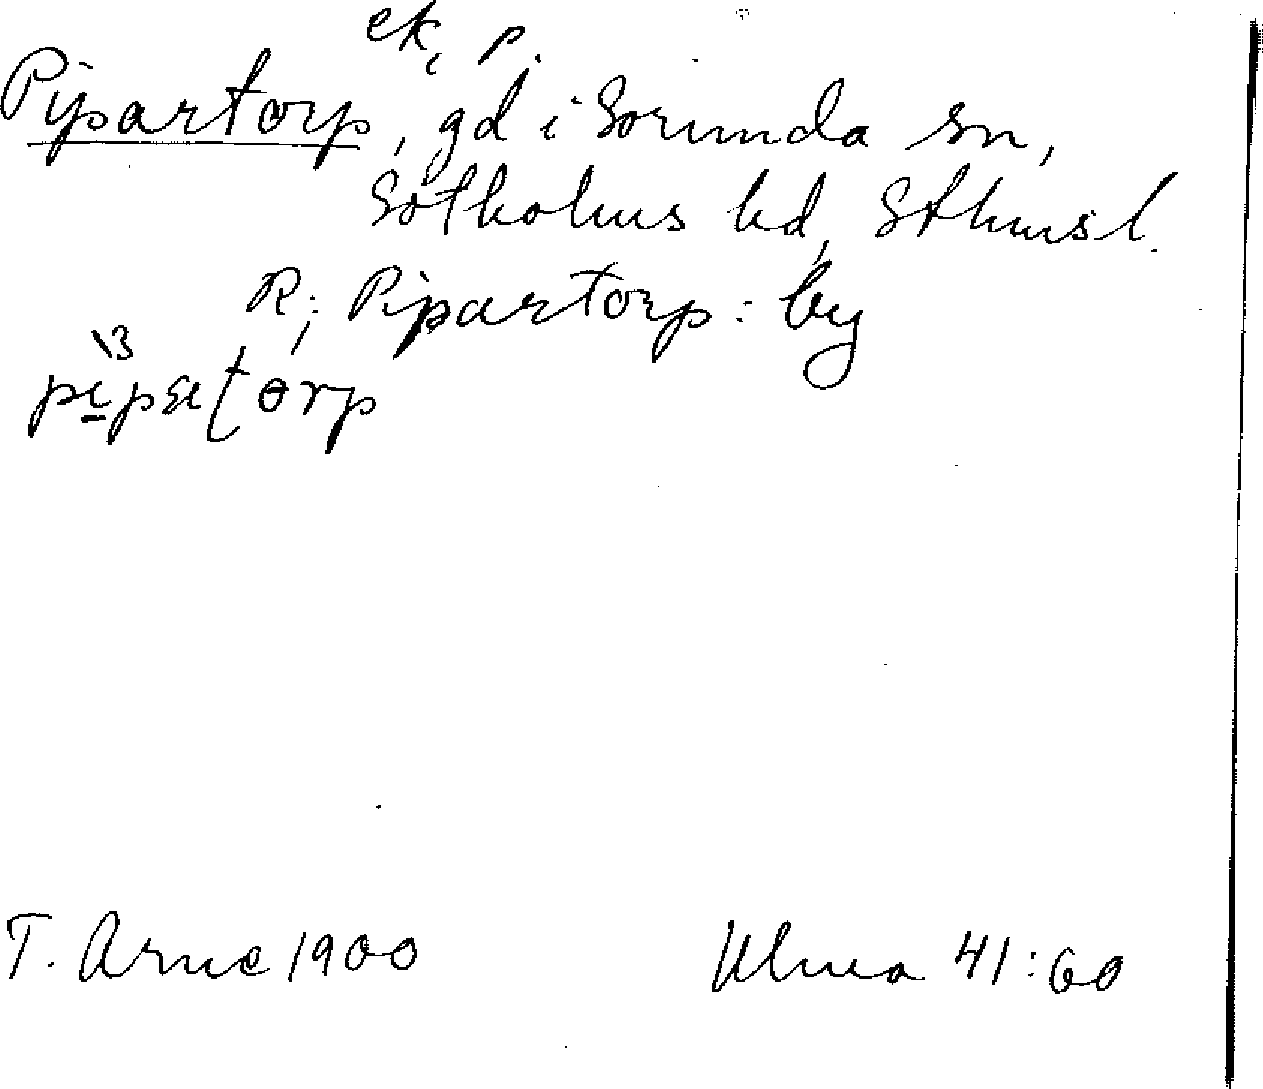 ek, p.
Pipartorp, gd i Sorunda sn,
Sotholms hd, Sthmsl.
R; Pipartorp: by
T. Arne 1900 Ulma 41:60